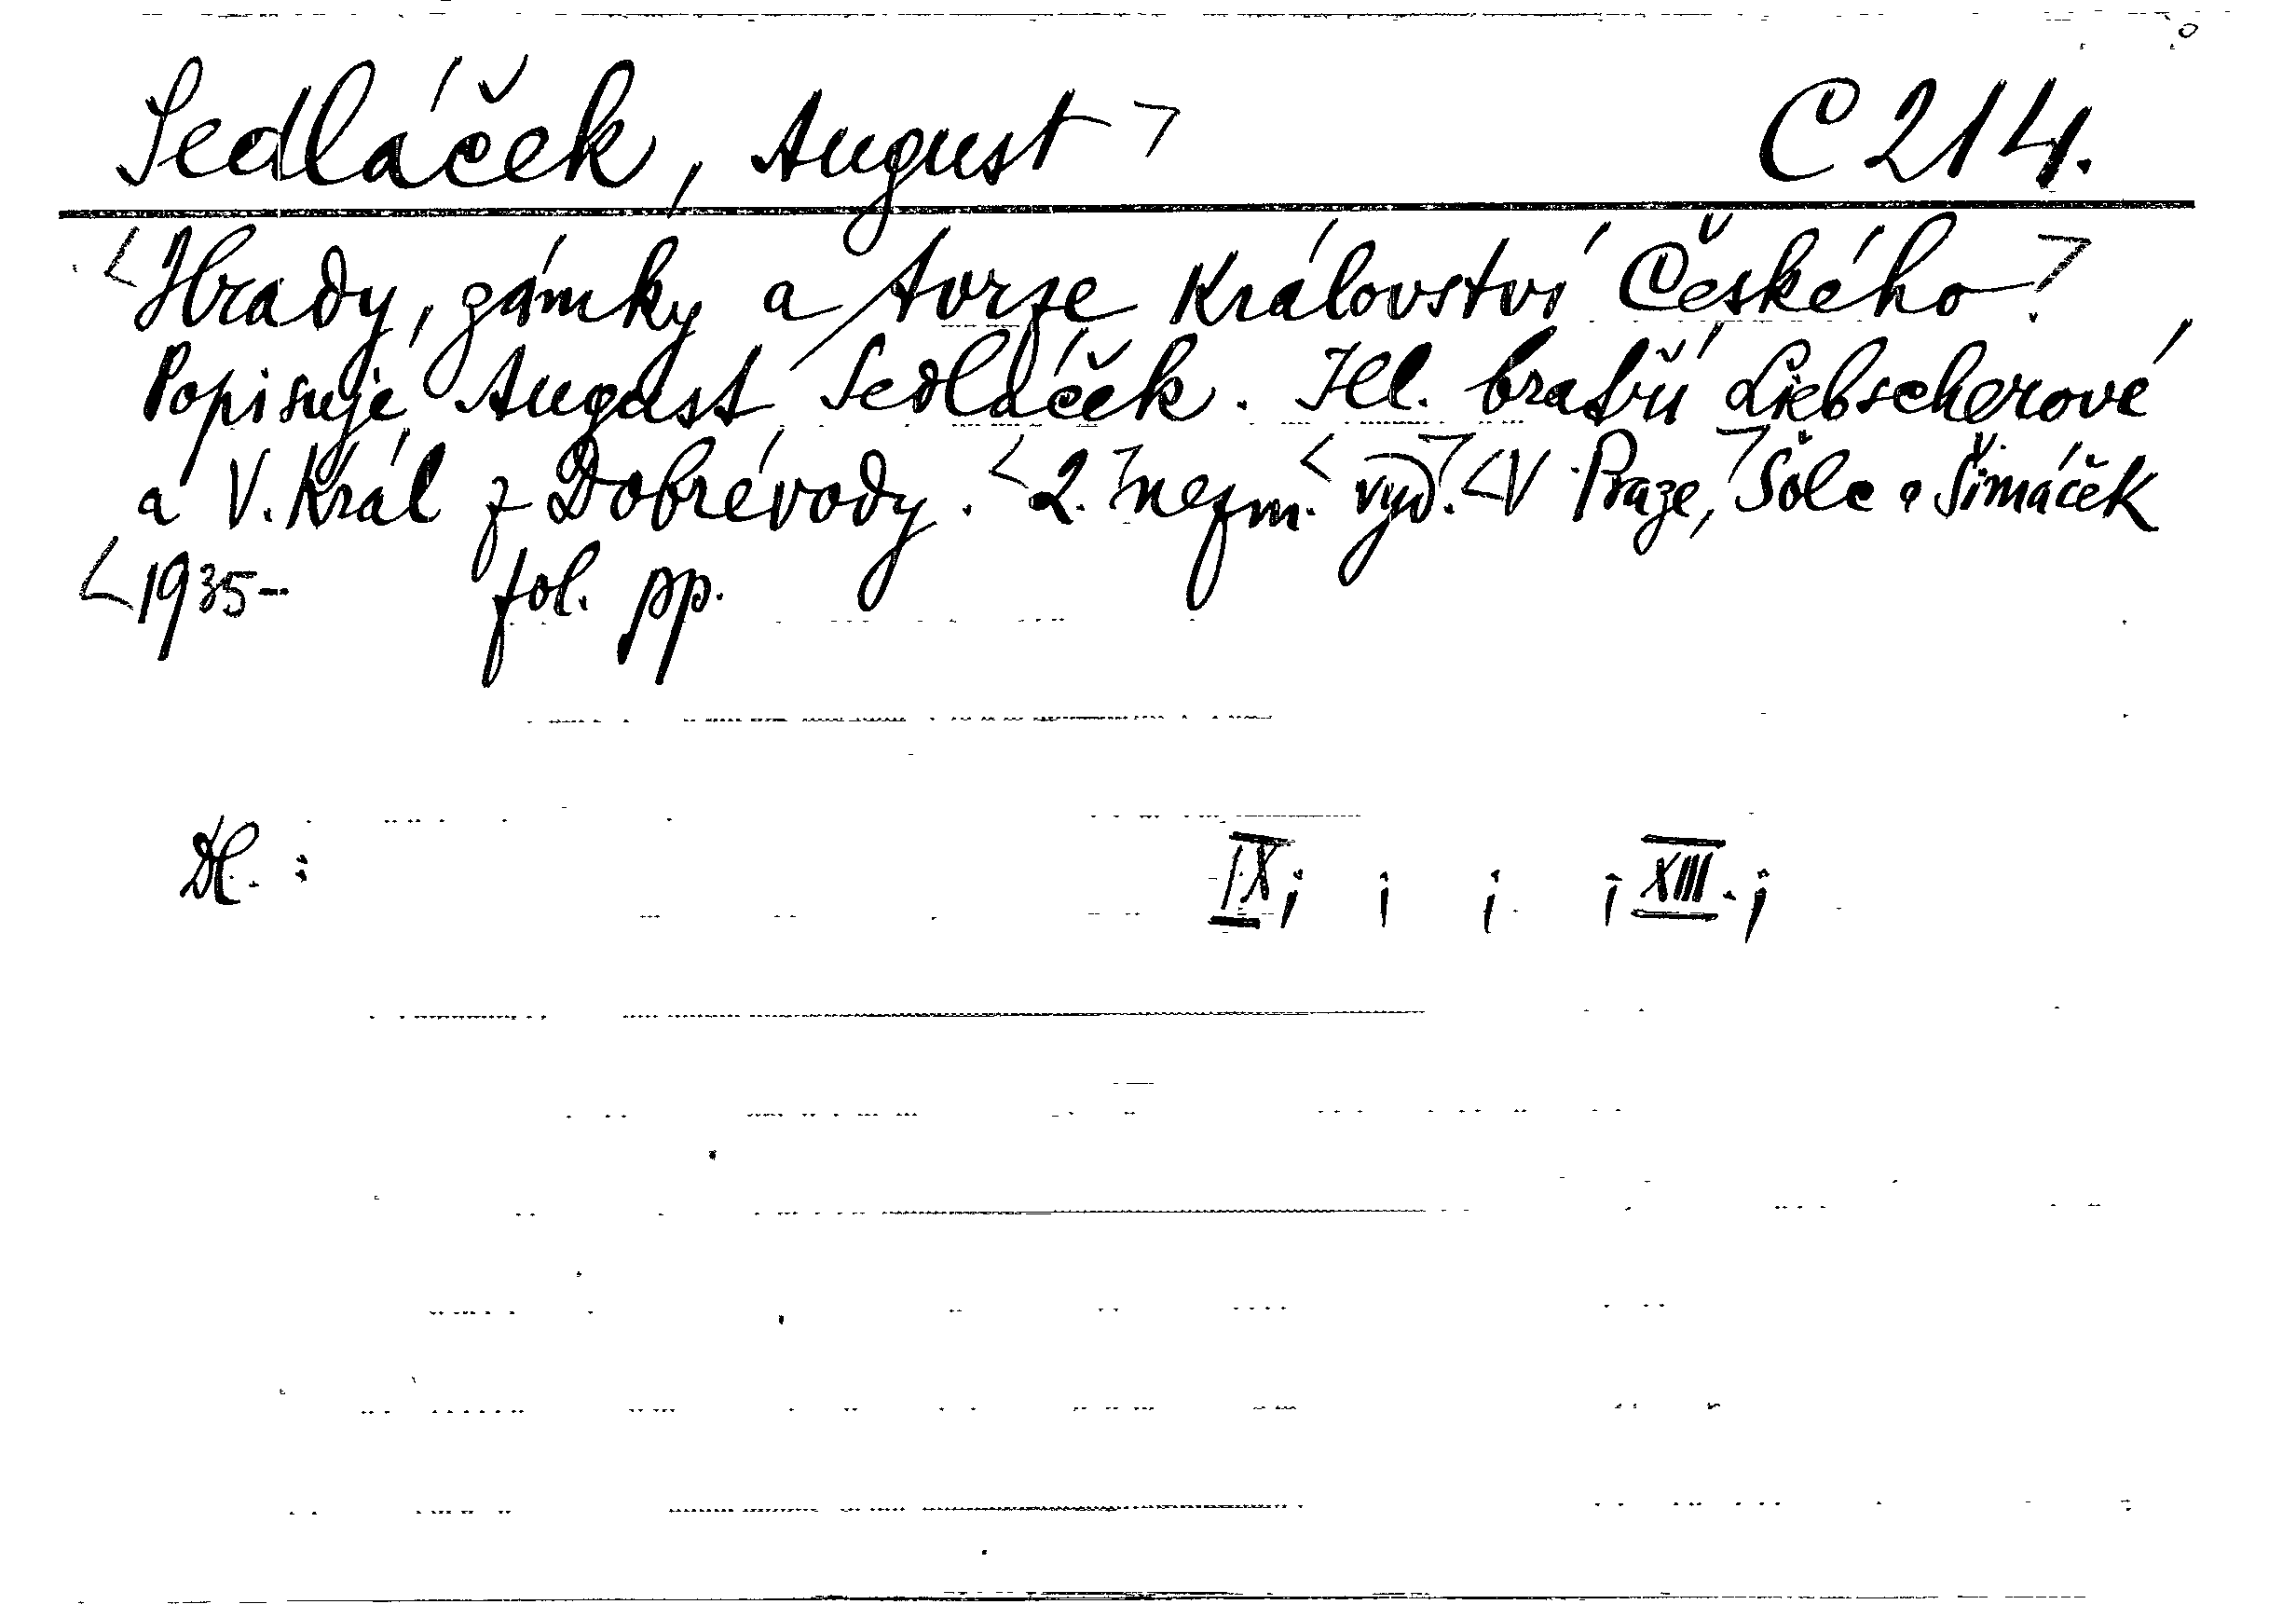 Sedláček, August ⌝ C 214.
<Hrady, zámky a tvrze Království Českého⌝.
Popisuje August Sedláček. Ill. bratří Liebscherové
a V. Král z Dobrévody. <2. ⌝nezm. <vyd.⌝ <V Praze,⌝ Šolc a Šimáček
<1935- fol. pp.
Dl. : IX; ; ; ; XIII. ;